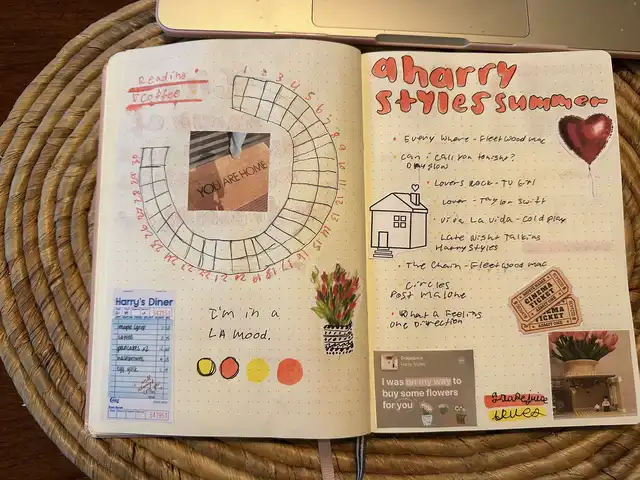 Reading
& Coffee
1 2 3 4 5 6 7 8 9 10 11 12 13 14 15 16 17 18 19 20 21 22 23 24 25 26 27 28 29 30
YOU ARE HOME
Harry's Diner
maple syrup
coffee
pancakes x2
egg yolk
I'm in a
LA mood.
a harry
styles summer
• Every Where - Fleetwood mac
• Can i call you tonight?
Dayglow
• Lovers Rock - TV Girl
• Lover - Taylor Swift
• Viva La Vida - Coldplay
• Late Night Talking
Harry Styles
• The Chain - Fleetwood mac
• Circles
Post Malone
• What a Feeling
One Direction
CINEMA
TICKET
CINEMA
TICKET
ADMIT ONE
Harry Styles
I was on my way to
buy some flowers
for you